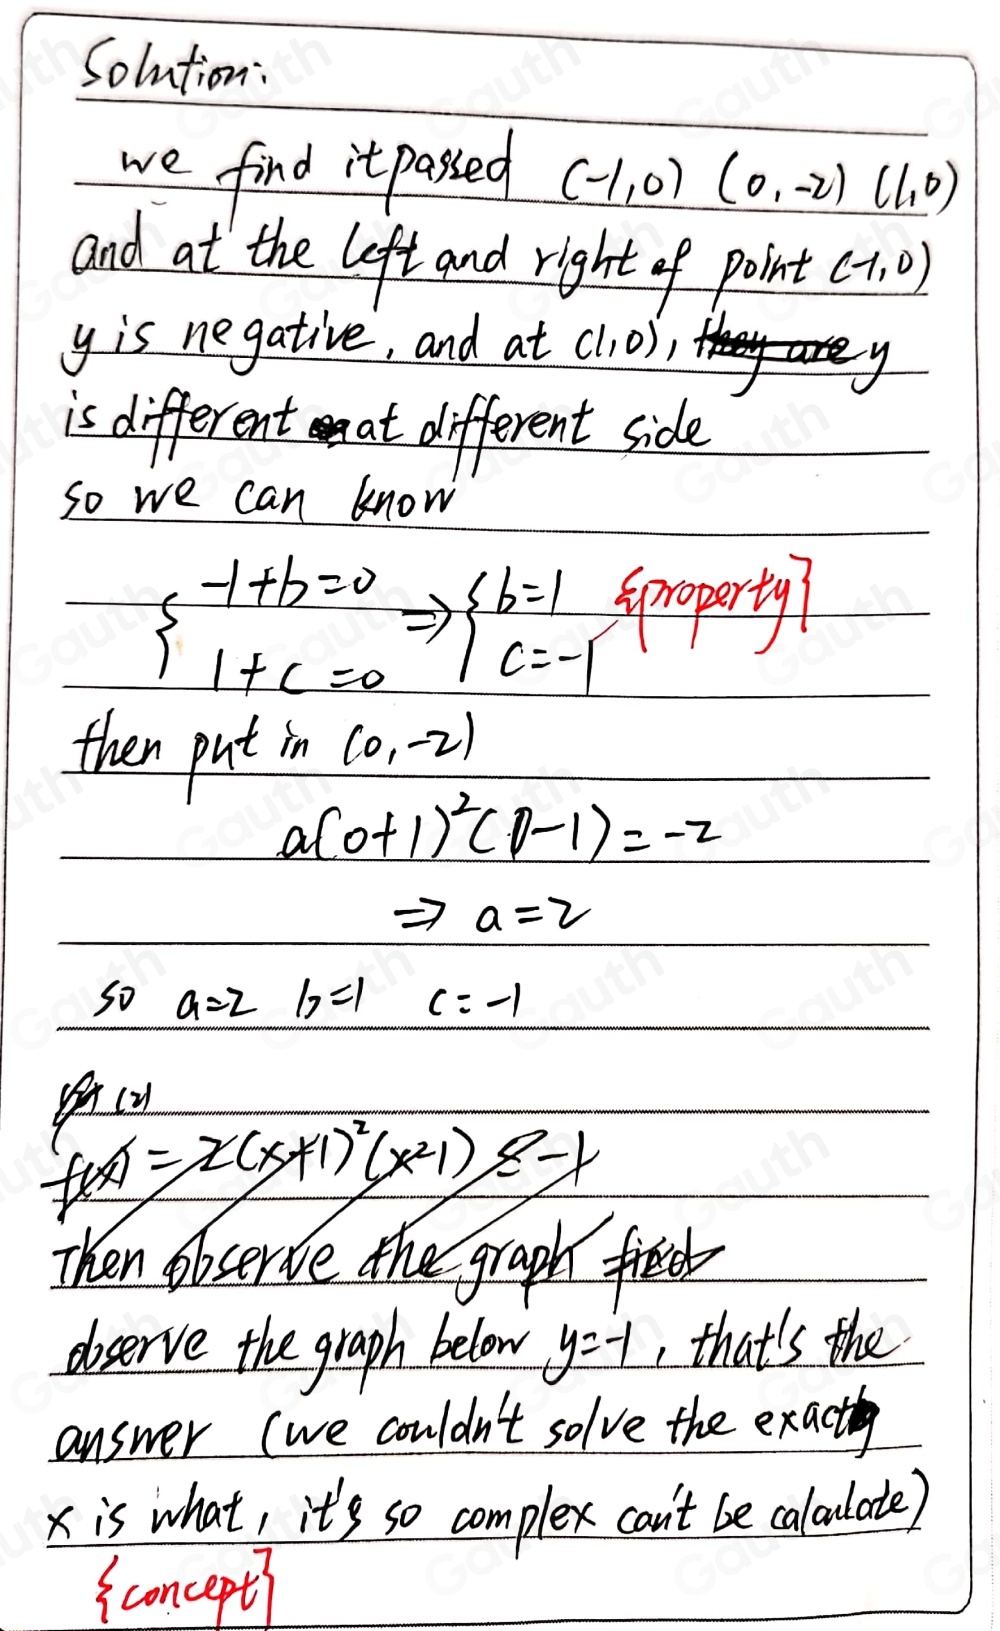 Solution:
we find it passed (-1,0) (0,-2) (1,0)
and at the left and right of point (-1,0)
y is negative, and at (1,0), they are y
is different at different side
so we can know
{ -1+b=0 ⇒ { b=1 {property}
1+c=0 c=-1
then put in (0,-2)
a(0+1)²(0-1)=-2
⇒ a=2
so a=2 b=1 c=-1
(2)
f(x)=2(x+1)²(x-1)≤-1
Then observe the graph find
observe the graph below y=-1, that's the
answer (we couldn't solve the exactly
x is what, it's so complex can't be calculate)
{concept}